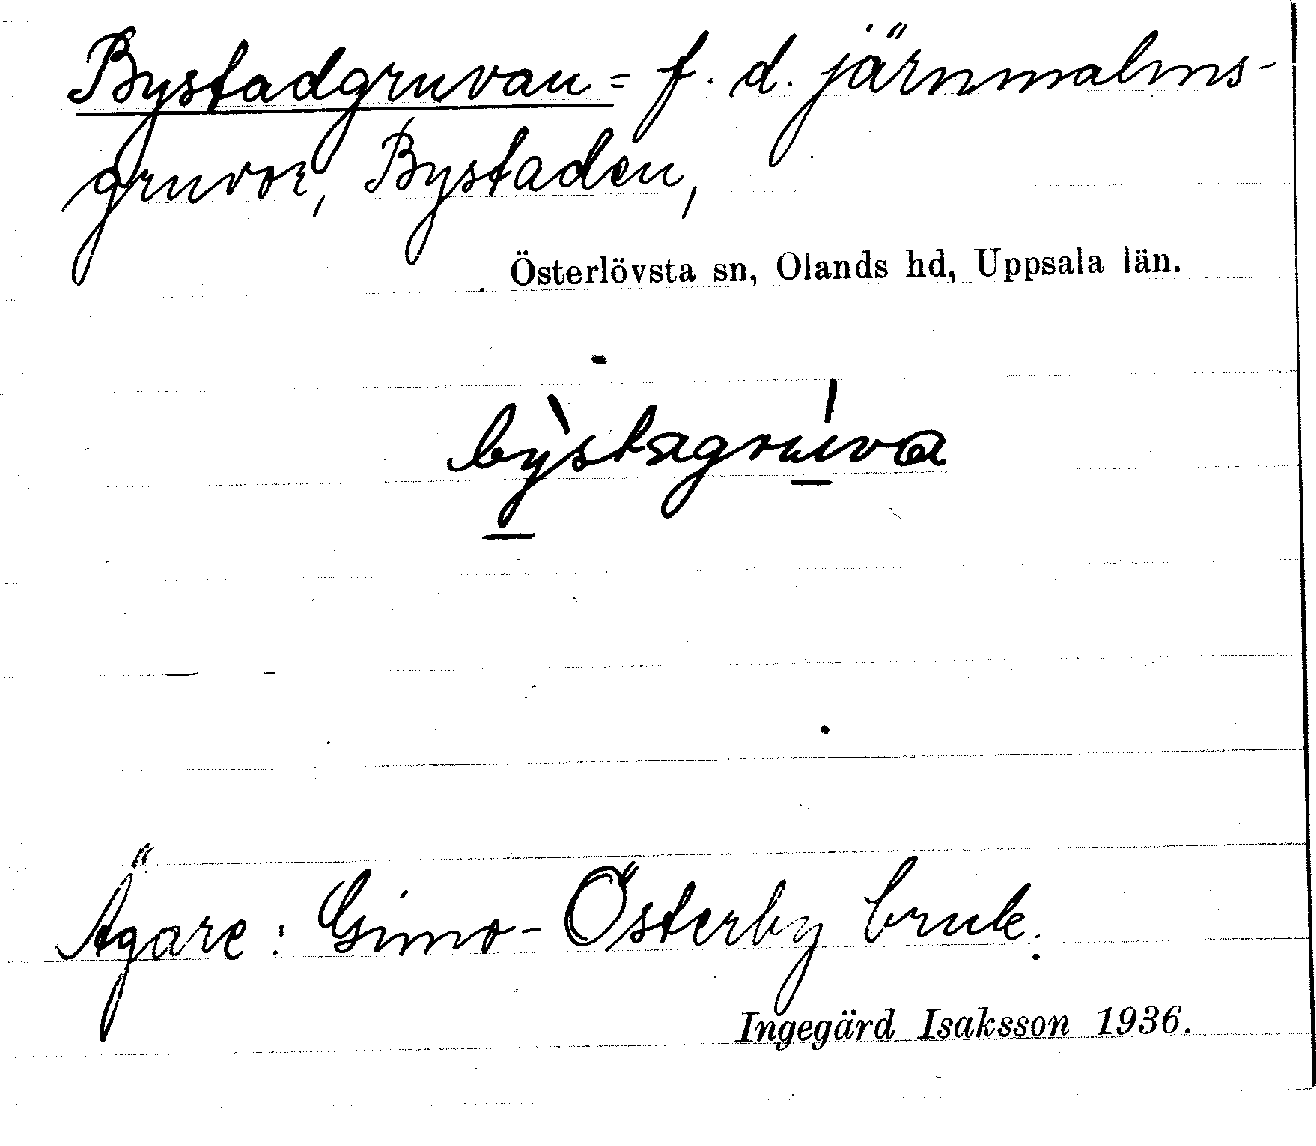 Bystadgruvan = f. d. järnmalms-
gruvor, Bystaden,
Österlövsta sn, Olands hd, Uppsala län.
bỳ̠stagrú̠va
Ägare: Gimo-Österby bruk.
Ingegärd Isaksson 1936.